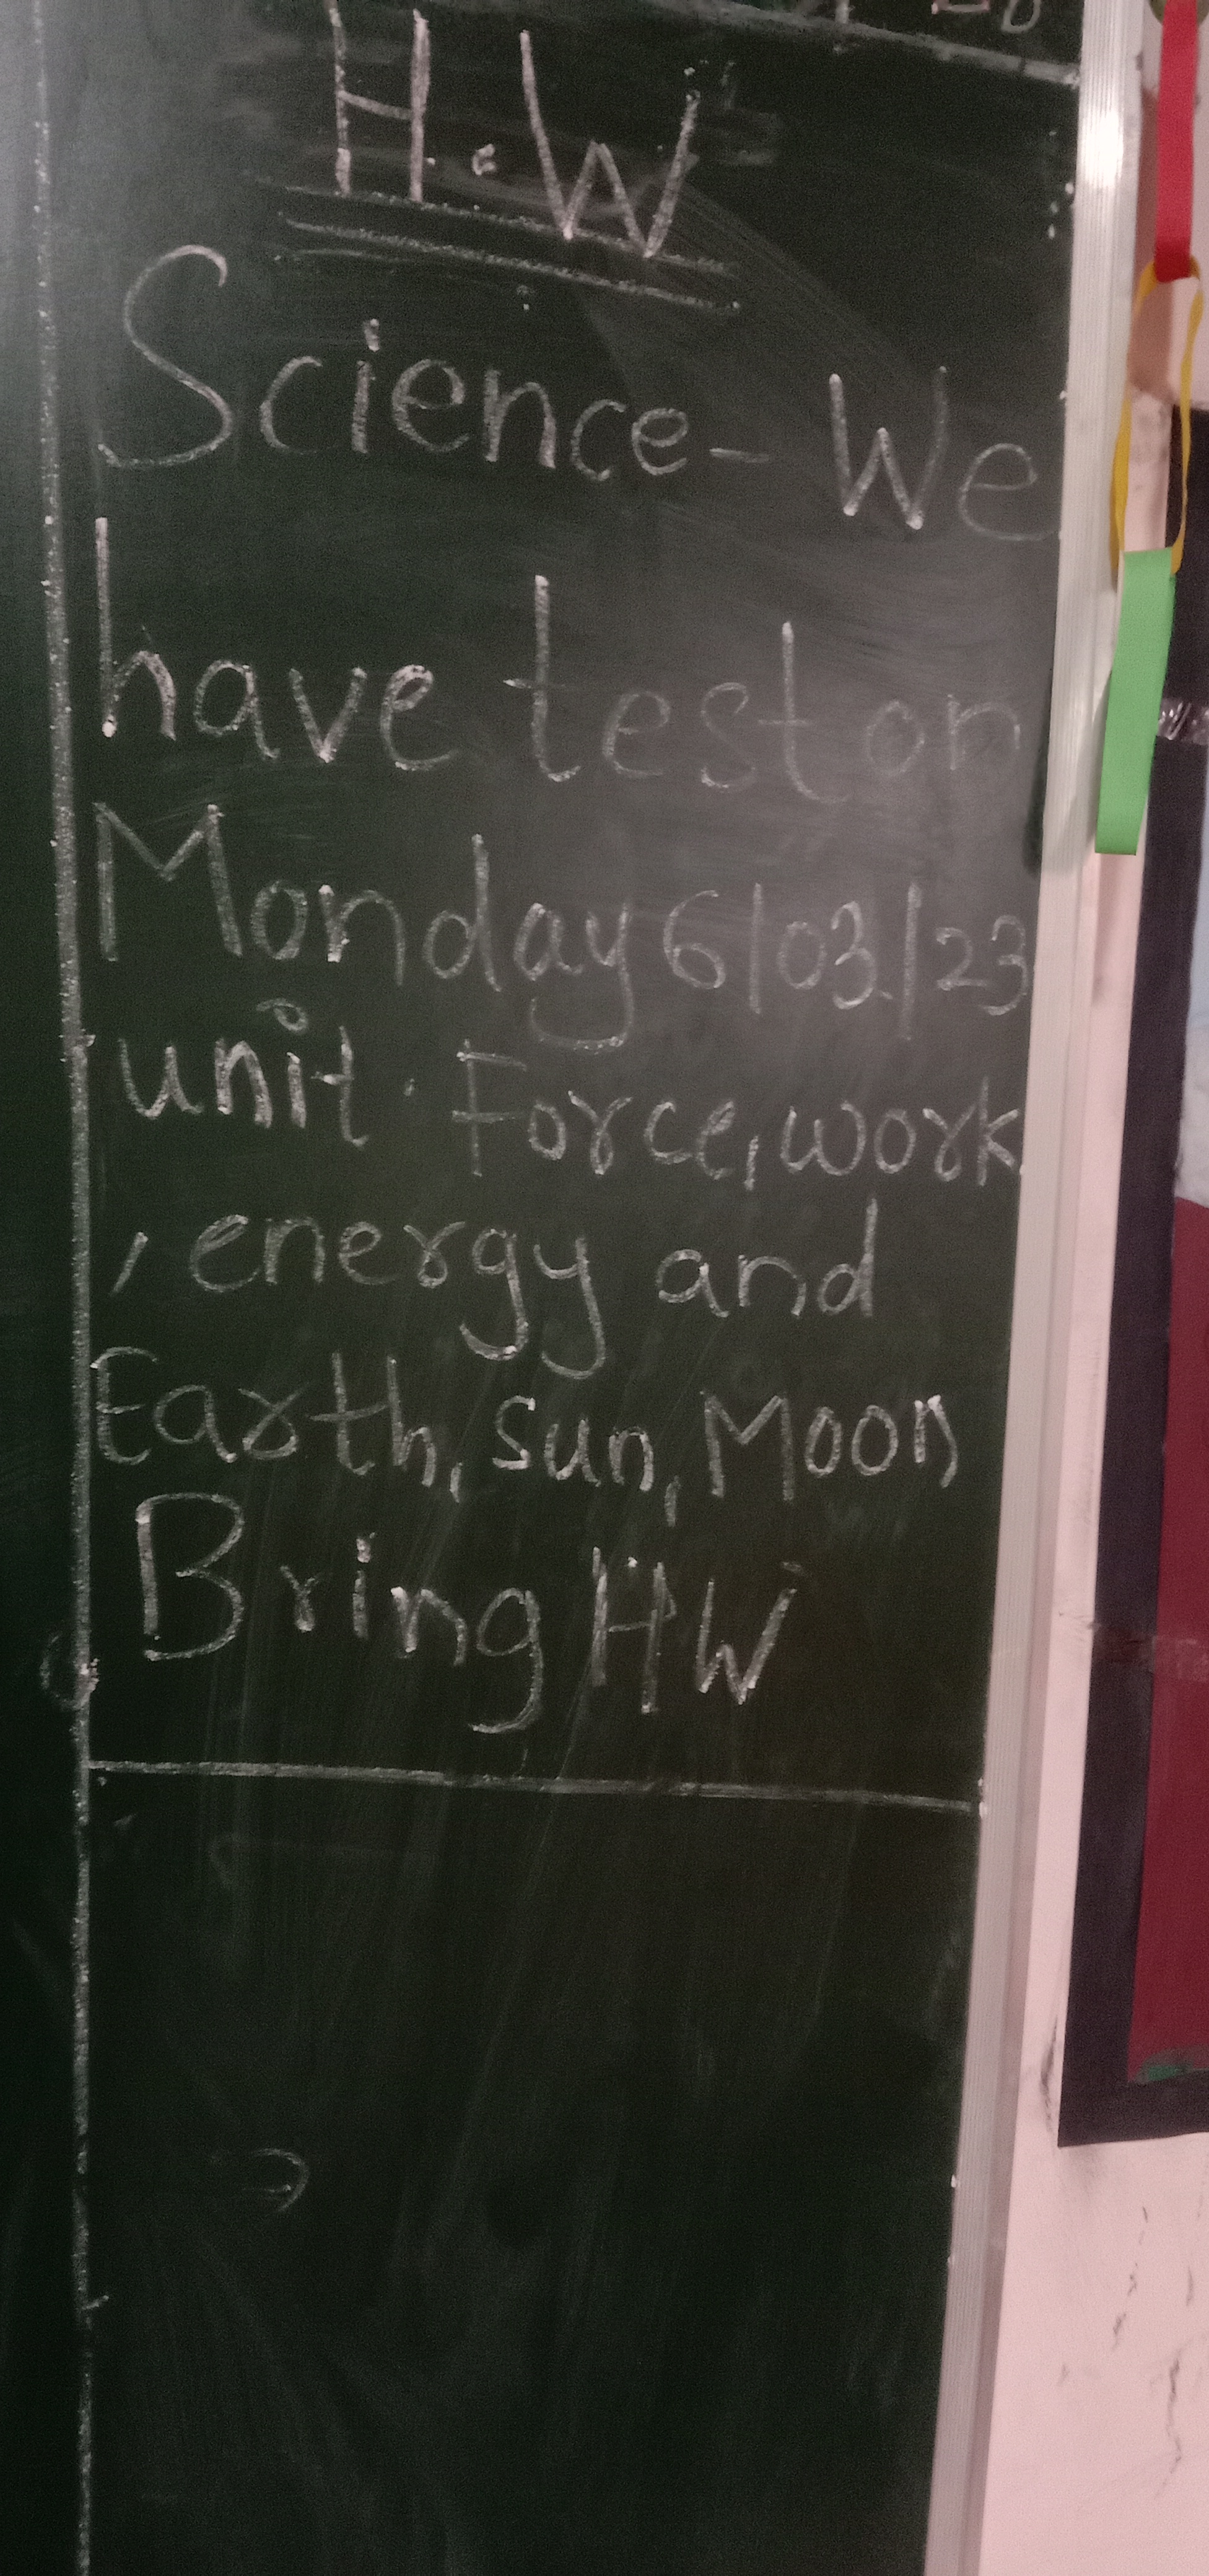 H.W
Science - We
have test on
Monday 6/03/23
unit. Force, work
, energy and
Earth, sun, Moon
Bring HW